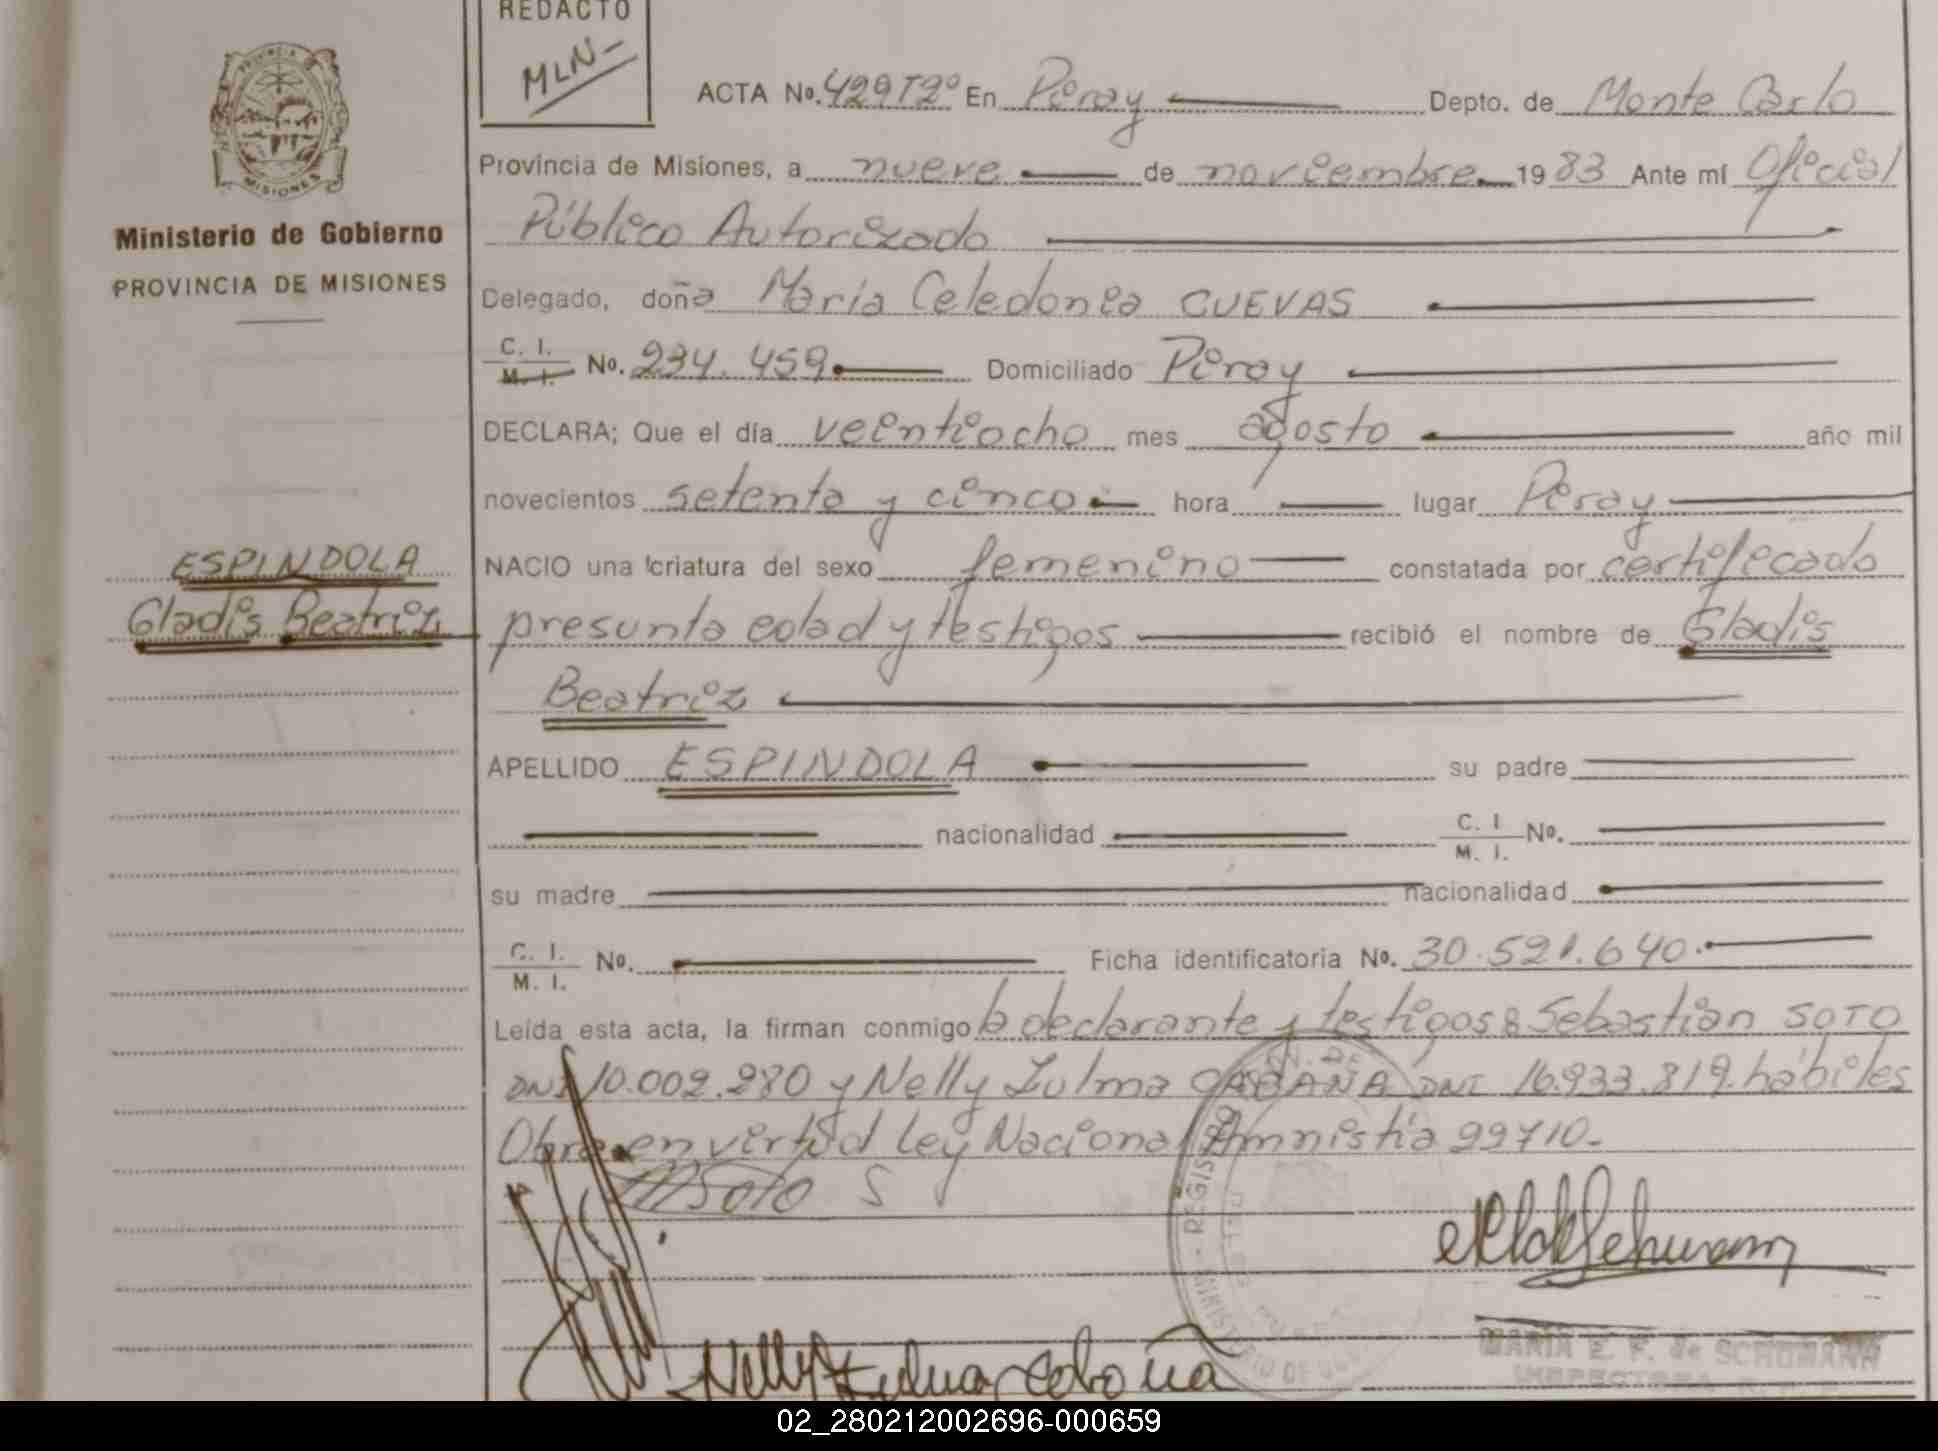 REDACTO
MLN-
PROVINCIA
MISIONES
Ministerio de Gobierno
PROVINCIA DE MISIONES
ACTA No. 429 T2º En Piray Depto. de Monte Carlo
Provincia de Misiones, a nueve de noviembre 1983 Ante mí Oficial
Público Autorizado
Delegado, doña María Celedonia CUEVAS
C. I.
M. I. No. 234.459 Domiciliado Piray
DECLARA; Que el día veintiocho mes agosto año mil
novecientos setenta y cinco hora lugar Piray
ESPINDOLA
Gladis Beatriz
NACIO una criatura del sexo femenino constatada por certificado
presunta edad y testigos recibió el nombre de Gladis
Beatriz
APELLIDO ESPINDOLA su padre
nacionalidad C. I. M. I. No.
su madre nacionalidad
C. I. M. I. No. Ficha identificatoria No. 30.521.640.
Leída esta acta, la firman conmigo la declarante y testigos: Sebastian SOTO
DNI 10.002.280 y Nelly Zulma CABAÑA DNI 16.933.819. hábiles
Obra en virtud Ley Nacional Amnistía 22710.
SOTO S
Nelly Zulma Cabaña
MARIA E. F. de SCHUMANN
INSPECTORA
02_280212002696-000659